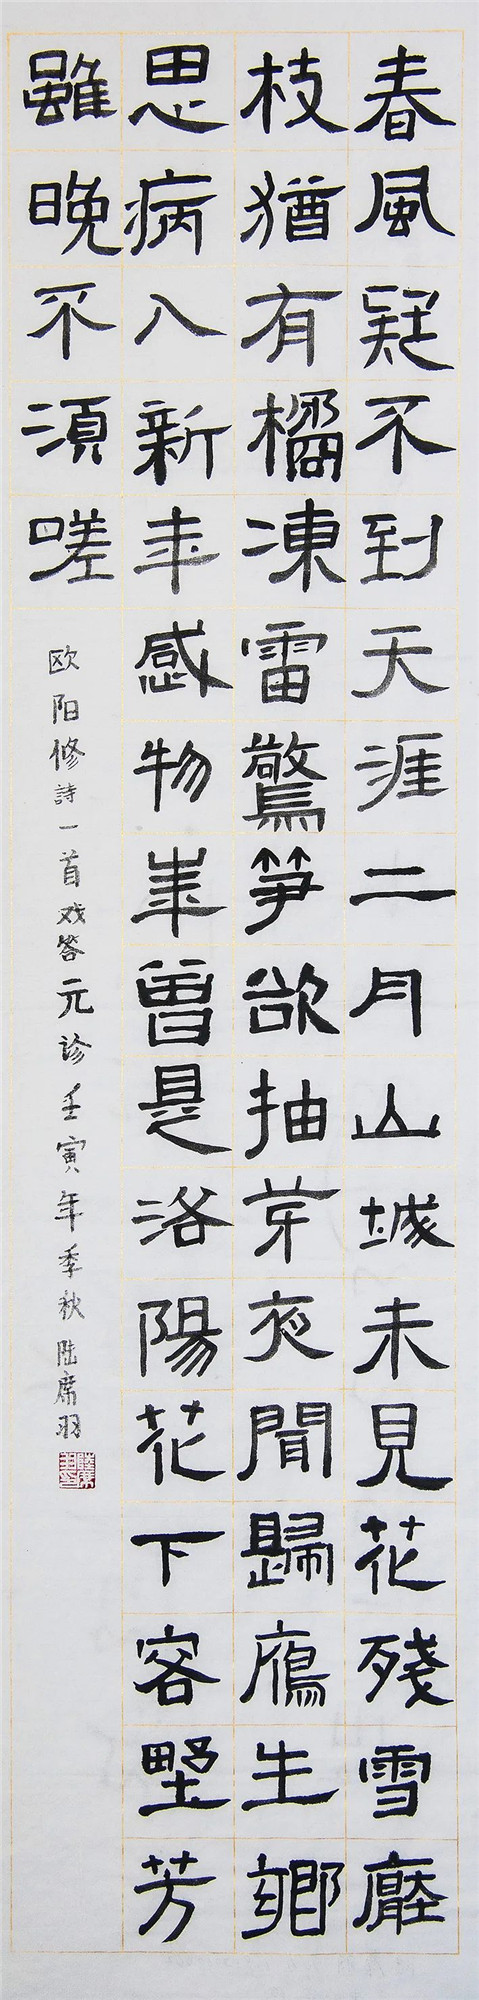 春風疑不到天涯二月山城未見花殘雪壓
枝猶有橘凍雷驚笋欲抽芽夜聞歸鴈生鄉
思病入新年感物華曾是洛陽花下客野芳
雖晚不須嗟
欧阳修詩一首戏答元診壬寅年季秋陆席羽